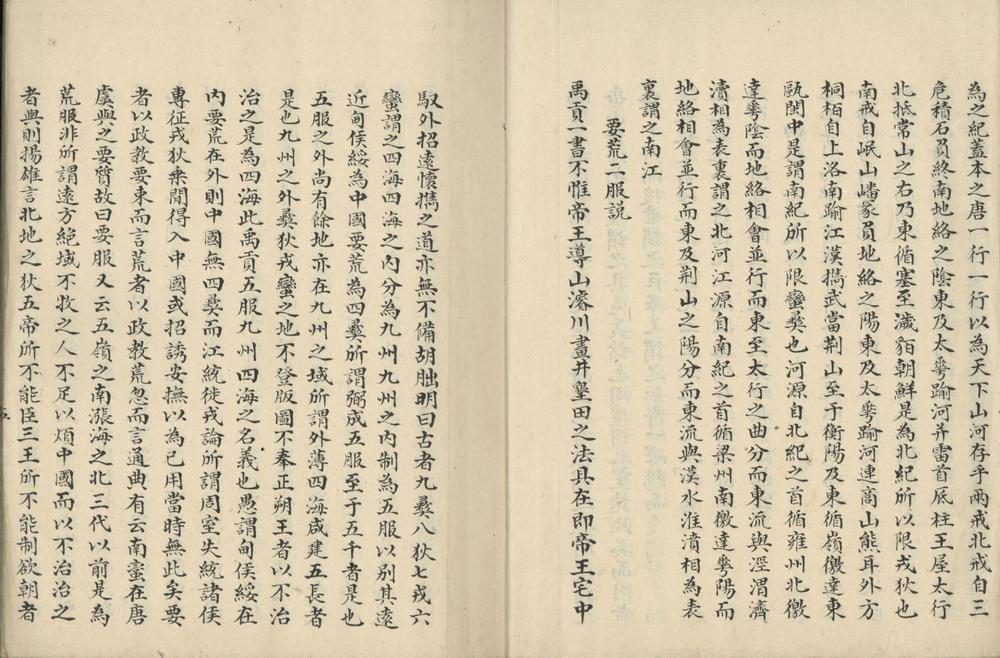 為之紀蓋本之唐一行一行以為天下山河存乎兩戒北戒自三
危積石負終南地絡之陰東及太華踰河并雷首底柱王屋太行
北抵常山之右乃東循塞至濊貊朝鮮是為北紀所以限戎狄也
南戒自岷山嶓冢負地絡之陽東及太華踰河連商山熊耳外方
桐栢自上洛南踰江漢攜武當荊山至于衡陽及東循嶺徼達東
甌閩中是謂南紀所以限蠻彝也河源自北紀之首循雍州北徼
達華陰而地絡相會並行而東至太行之曲分而東流與涇渭濟
瀆相為表裏謂之北河江源自南紀之首循梁州南徼達華陽而
地絡相會並行而東及荊山之陽分而東流與漢水淮瀆相為表
裏謂之南江
要荒二服說
禹貢一書不惟帝王導山濬川畫井墾田之法具在即帝王宅中
馭外招遠懷攜之道亦無不備胡朏明曰古者九彝八狄七戎六
蠻謂之四海四海之內分為九州九州之內制為五服以別其遠
近甸侯綏為中國要荒為四彝所謂弼成五服至于五千者是也
五服之外尚有餘地亦在九州之域所謂外薄四海咸建五長者
是也九州之外彝狄戎蠻之地不登版圖不奉正朔王者以不治
治之是為四海此禹貢五服九州四海之名義也愚謂甸侯綏在
內要荒在外則中國無四彝而江統徙戎論所謂周室失統諸侯
專征戎狄乘間得入中國或招誘安撫以為已用當時無此矣要
者以政教要束而言荒者以政教荒忽而言通曲有云南蠻在唐
虞與之要質故曰要服又云五嶺之南漲海之北三代以前是為
荒服非所謂遠方絕域不牧之人不足以煩中國而以不治治之
者與則揚雄言北地之狄五帝所不能臣三王所不能制欲朝者